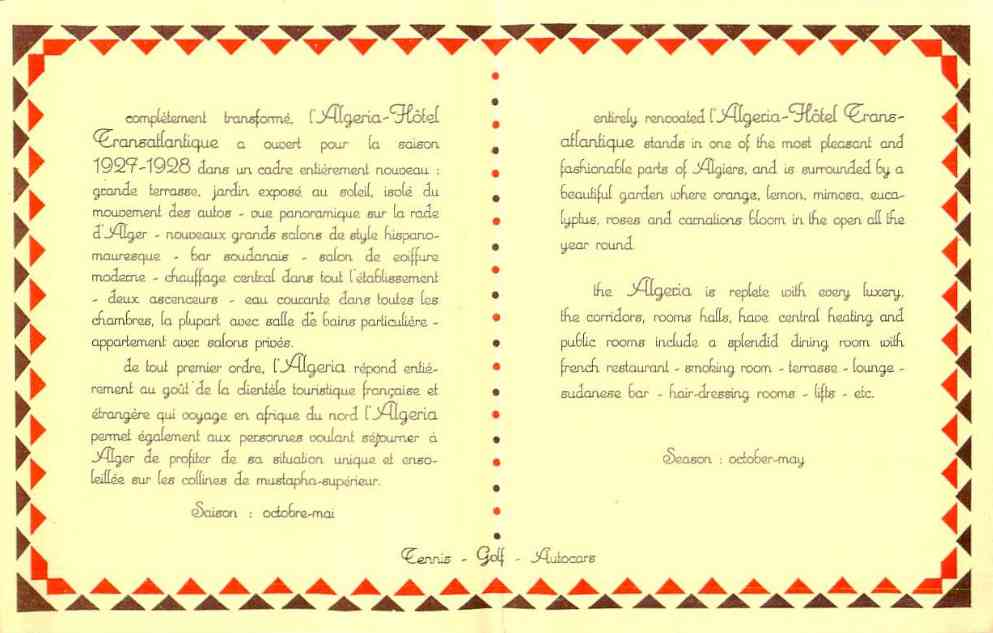 complètement transformé, l'Algeria-Hôtel
Transatlantique a ouvert pour la saison
1927-1928 dans un cadre entièrement nouveau :
grande terrasse, jardin exposé au soleil, isolé du
mouvement des autos - vue panoramique sur la rade
d'Alger - nouveaux grands salons de style hispano-
mauresque - bar soudanais - salon de coiffure
moderne - chauffage central dans tout l'établissement
- deux ascenceurs - eau courante dans toutes les
chambres, la plupart avec salle de bains particulière -
appartement avec salons privés.
de tout premier ordre, l'Algeria répond entiè-
rement au goût de la clientèle touristique française et
étrangère qui voyage en afrique du nord l'Algeria
permet également aux personnes voulant séjourner à
Alger de profiter de sa situation unique et enso-
leillée sur les collines de mustapha-supérieur.
Saison : octobre-mai
entirely renovated l'Algeria-Hôtel Trans-
atlantique stands in one of the most pleasant and
fashionable parts of Algiers, and is surrounded by a
beautiful garden where orange, lemon, mimosa, euca-
lyptus, roses and carnations bloom in the open all the
year round.
the Algeria is replete with every luxery,
the corridors, rooms halls, have central heating and
public rooms include a splendid dining room with
french restaurant - smoking room - terrasse - lounge -
sudanese bar - hair-dressing rooms - lifts - etc.
Season : october-may
Tennis - Golf - Autocars